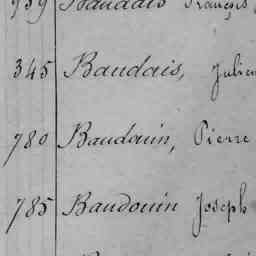 759 Baudais François
345 Baudais, Julien
780 Baudouin, Pierre
785 Baudouin Joseph